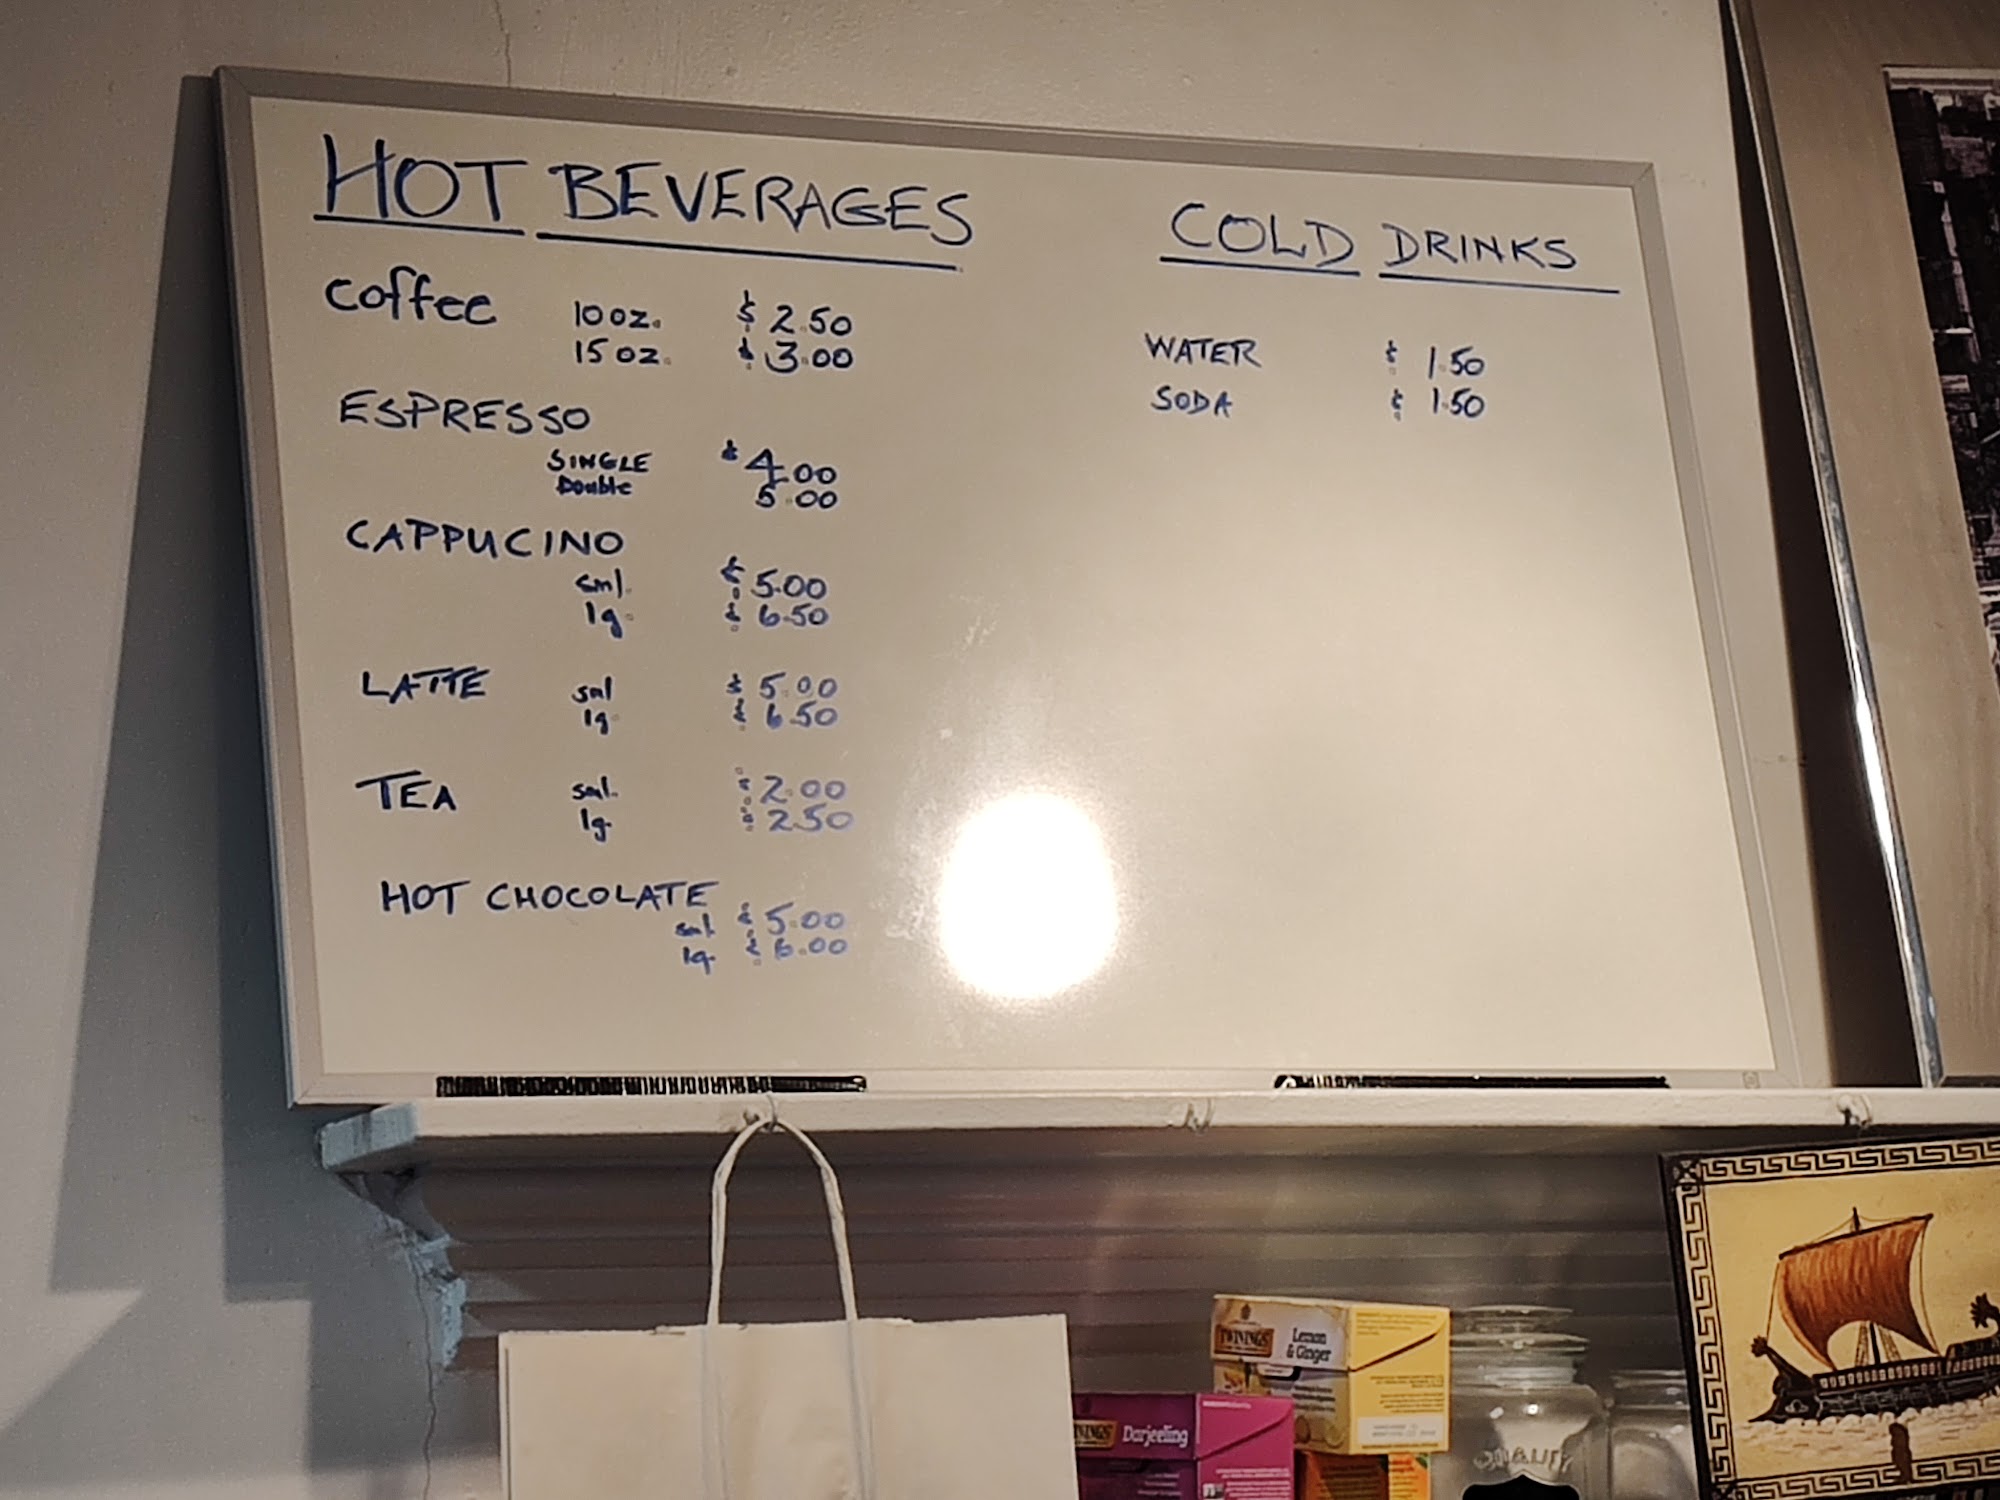 HOT BEVERAGES
Coffee 10 oz. $ 2.50
15 oz. $ 3.00
ESPRESSO
SINGLE $ 4.00
Double 5.00
CAPPUCINO
sml. $ 5.00
lg. $ 6.50
LATTE sml $ 5.00
lg. $ 6.50
TEA sml. $ 2.00
lg. $ 2.50
HOT CHOCOLATE
sml. $ 5.00
lg. $ 6.00
COLD DRINKS
WATER $ 1.50
SODA $ 1.50
TWININGS
Lemon
& Ginger
Darjeeling